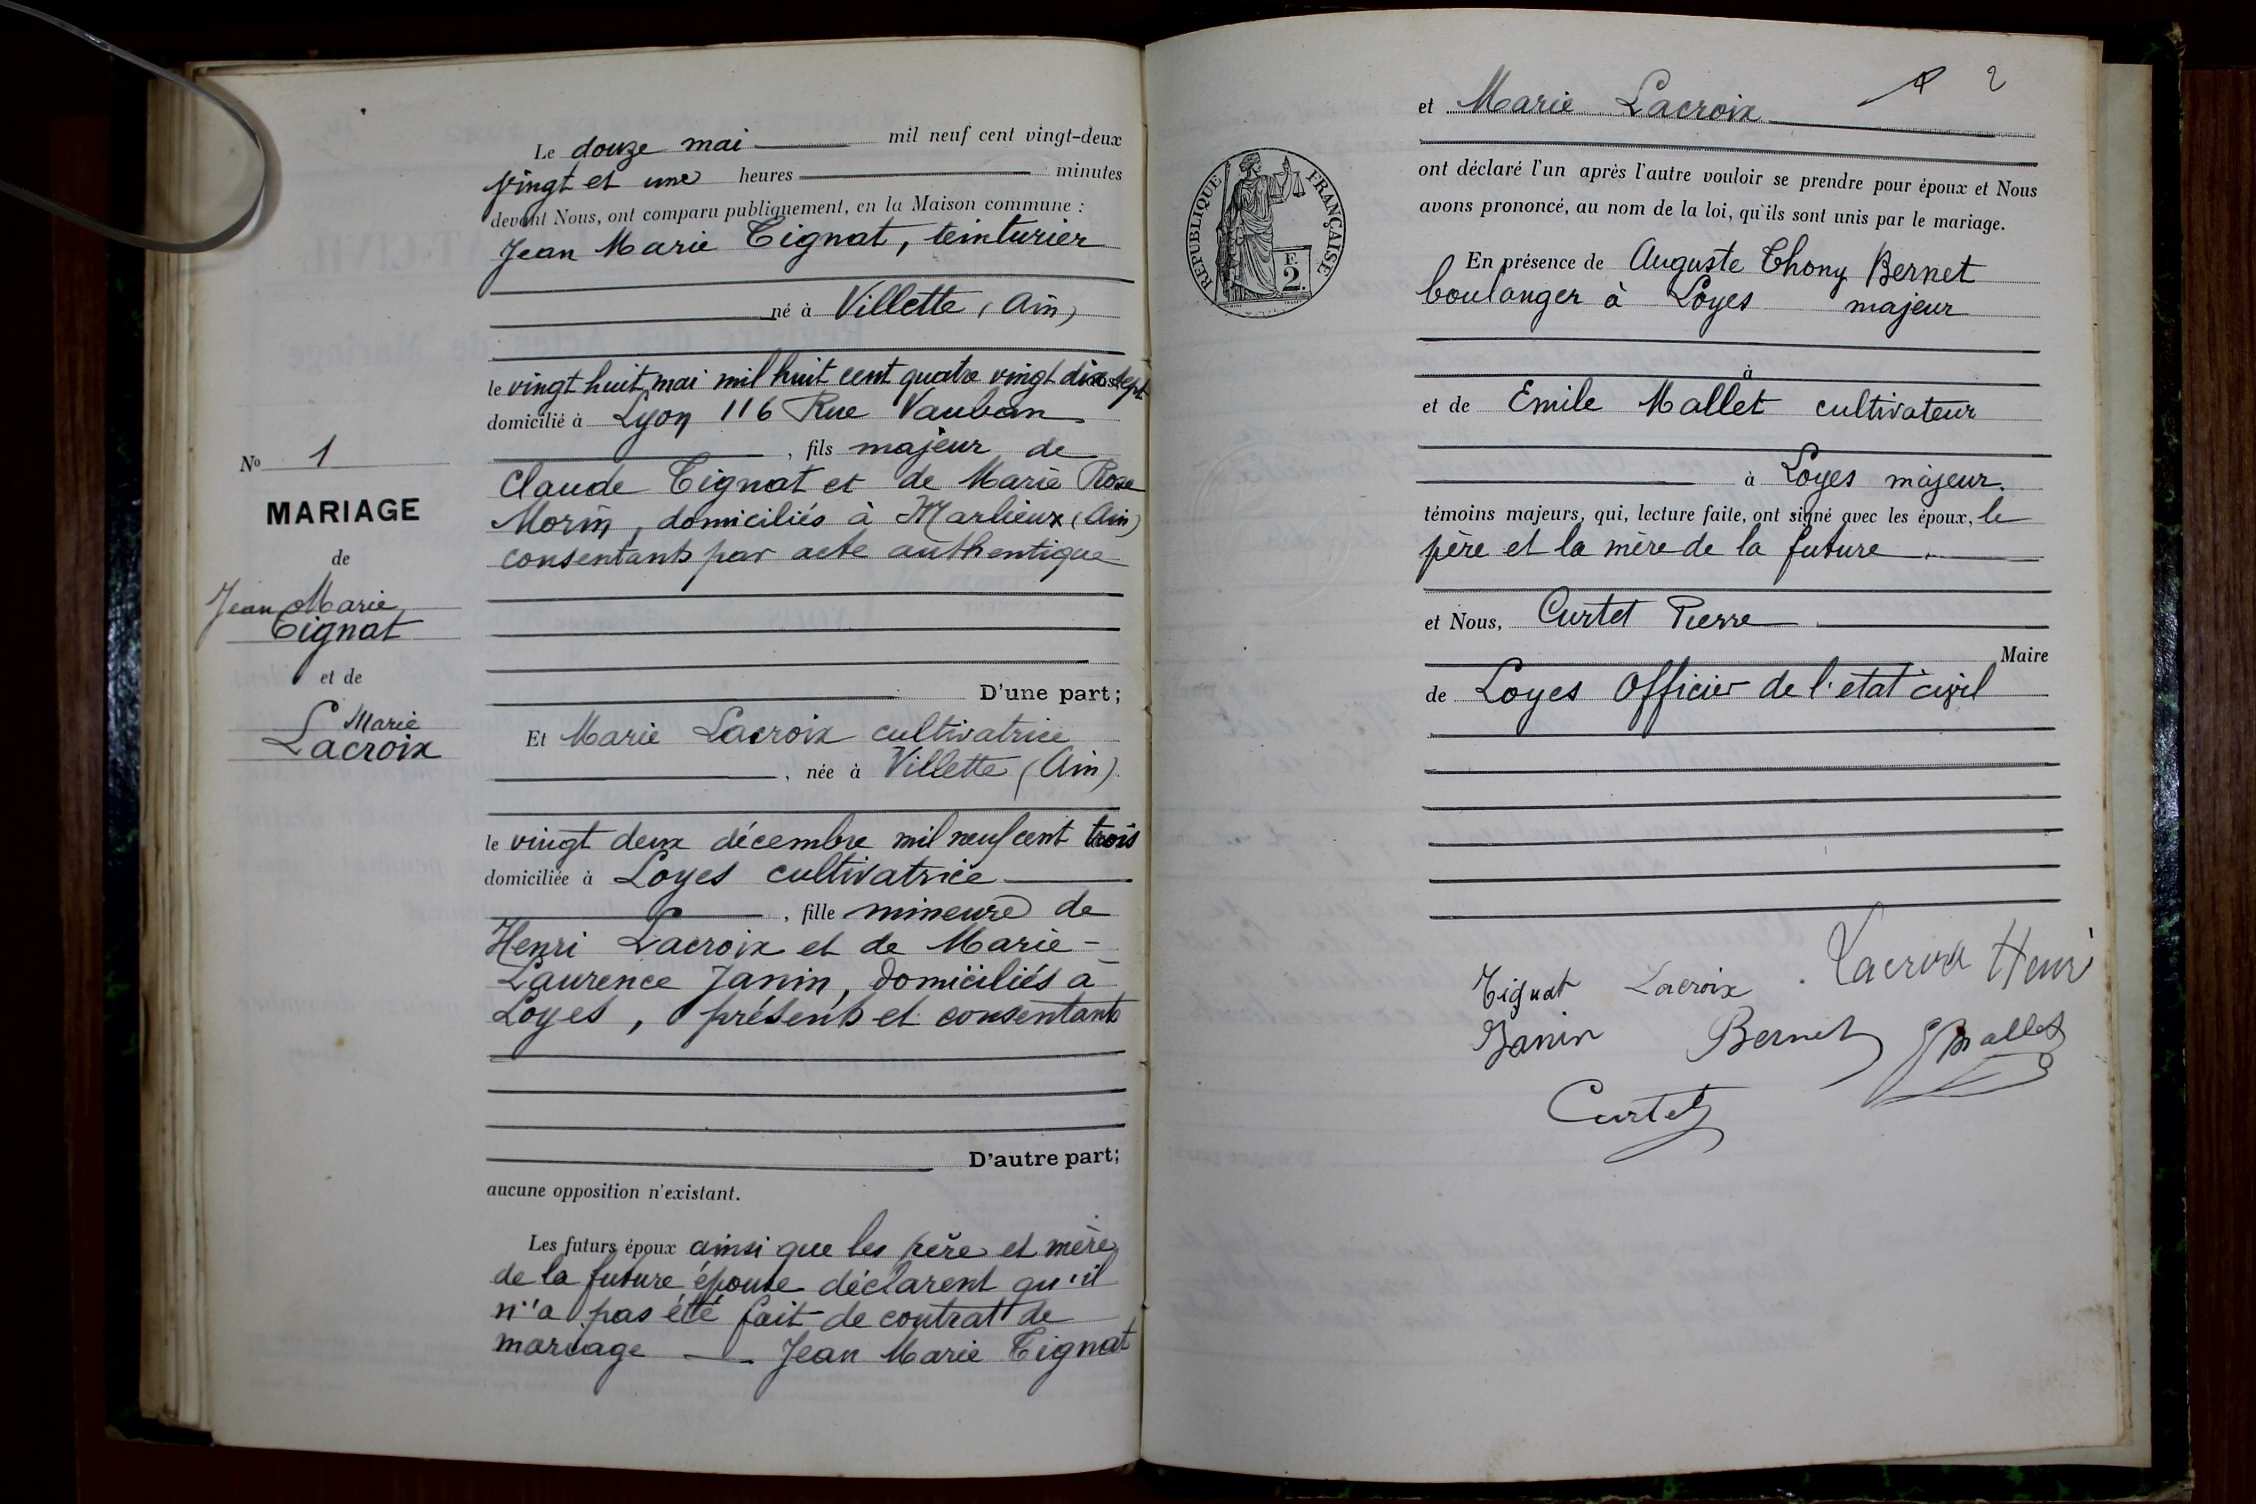 Le douze mai mil neuf cent vingt-deux
vingt et une heures minutes
devant Nous, ont comparu publiquement, en la Maison commune :
Jean Marie Tignat, teinturier
né à Villette (Ain)
le vingt huit mai mil huit cent quatre vingt dix sept
domicilié à Lyon 116 Rue Vauban
, fils majeur de
Claude Tignat et de Marie Rose
Morin, domiciliés à Marlieux (Ain)
consentants par acte authentique
D'une part;
Nº 1
MARIAGE
de
Jean Marie
Tignat
et de
Marie
Lacroix
Et Marie Lacroix cultivatrice
, née à Villette (Ain).
le vingt deux décembre mil neuf cent trois
domiciliée à Loyes cultivatrice
, fille mineure de
Henri Lacroix et de Marie-
Laurence Janin, domiciliés à
Loyes, présents et consentants
D'autre part;
aucune opposition n'existant.
Les futurs époux ainsi que les père et mère
de la future épouse déclarent qu'il
n'a pas été fait de contrat de
mariage — Jean Marie Tignat
2
et Marie Lacroix
ont déclaré l'un après l'autre vouloir se prendre pour époux et Nous
avons prononcé, au nom de la loi, qu'ils sont unis par le mariage.
RÉPUBLIQUE FRANÇAISE
F.
2.
En présence de Auguste Thony Bernet
boulanger à Loyes majeur
à
et de Emile Mallet cultivateur
à Loyes majeur.
témoins majeurs, qui, lecture faite, ont signé avec les époux, le
père et la mère de la future.
et Nous, Curtet Pierre
Maire
de Loyes Officier de l'etat civil
Tignat Lacroix Lacroix Henri
Janin Bernet Mallet
Curtet